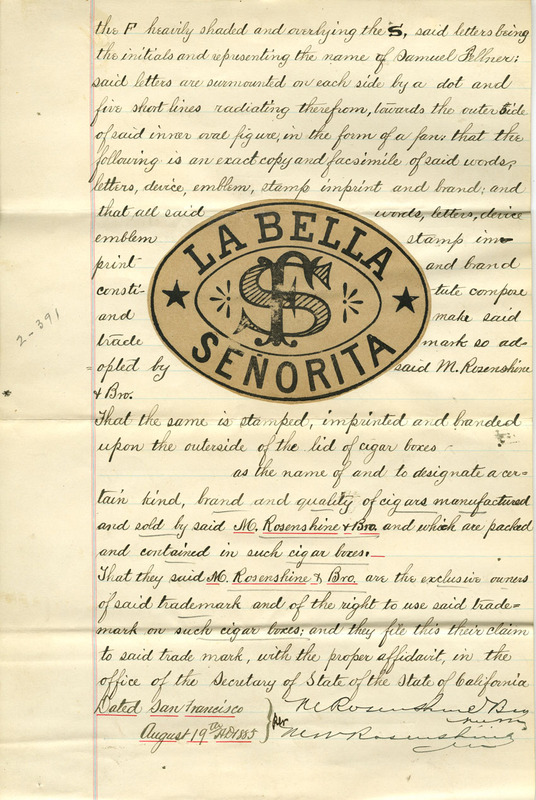 the F heavily shaded and overlying the S, said letters being
the initials and representing the name of Samuel Fellner;
said letters are surmounted on each side by a dot and
five short lines radiating therefrom, towards the outer side
of said inner oval figure, in the form of a fan: that the
following is an exact copy and facsimile of said words,
letters, device, emblem, stamp imprint and brand; and
that all said words, letters, device
emblem stamp im-
print and brand
consti- tute compose
and make said
trade mark so ad-
opted by said M. Rosenshine
& Bro.
LA BELLA
FS
SEÑORITA
2-391
*
That the same is stamped, imprinted and branded
upon the outerside of the lid of cigar boxes
as the name of and to designate a cer-
tain kind, brand and quality of cigars manufactured
and sold by said M. Rosenshine & Bro. and which are packed
and contained in such cigar boxes.
That they said M. Rosenshine & Bro. are the exclusive owners
of said trademark and of the right to use said trade=
mark on such cigar boxes; and they file this their claim
to said trade mark, with the proper affidavit, in the
office of the Secretary of State of the State of California
Dated San Francisco
August 19th AD 1885
M Rosenshine & Bro
per
Rosenshine